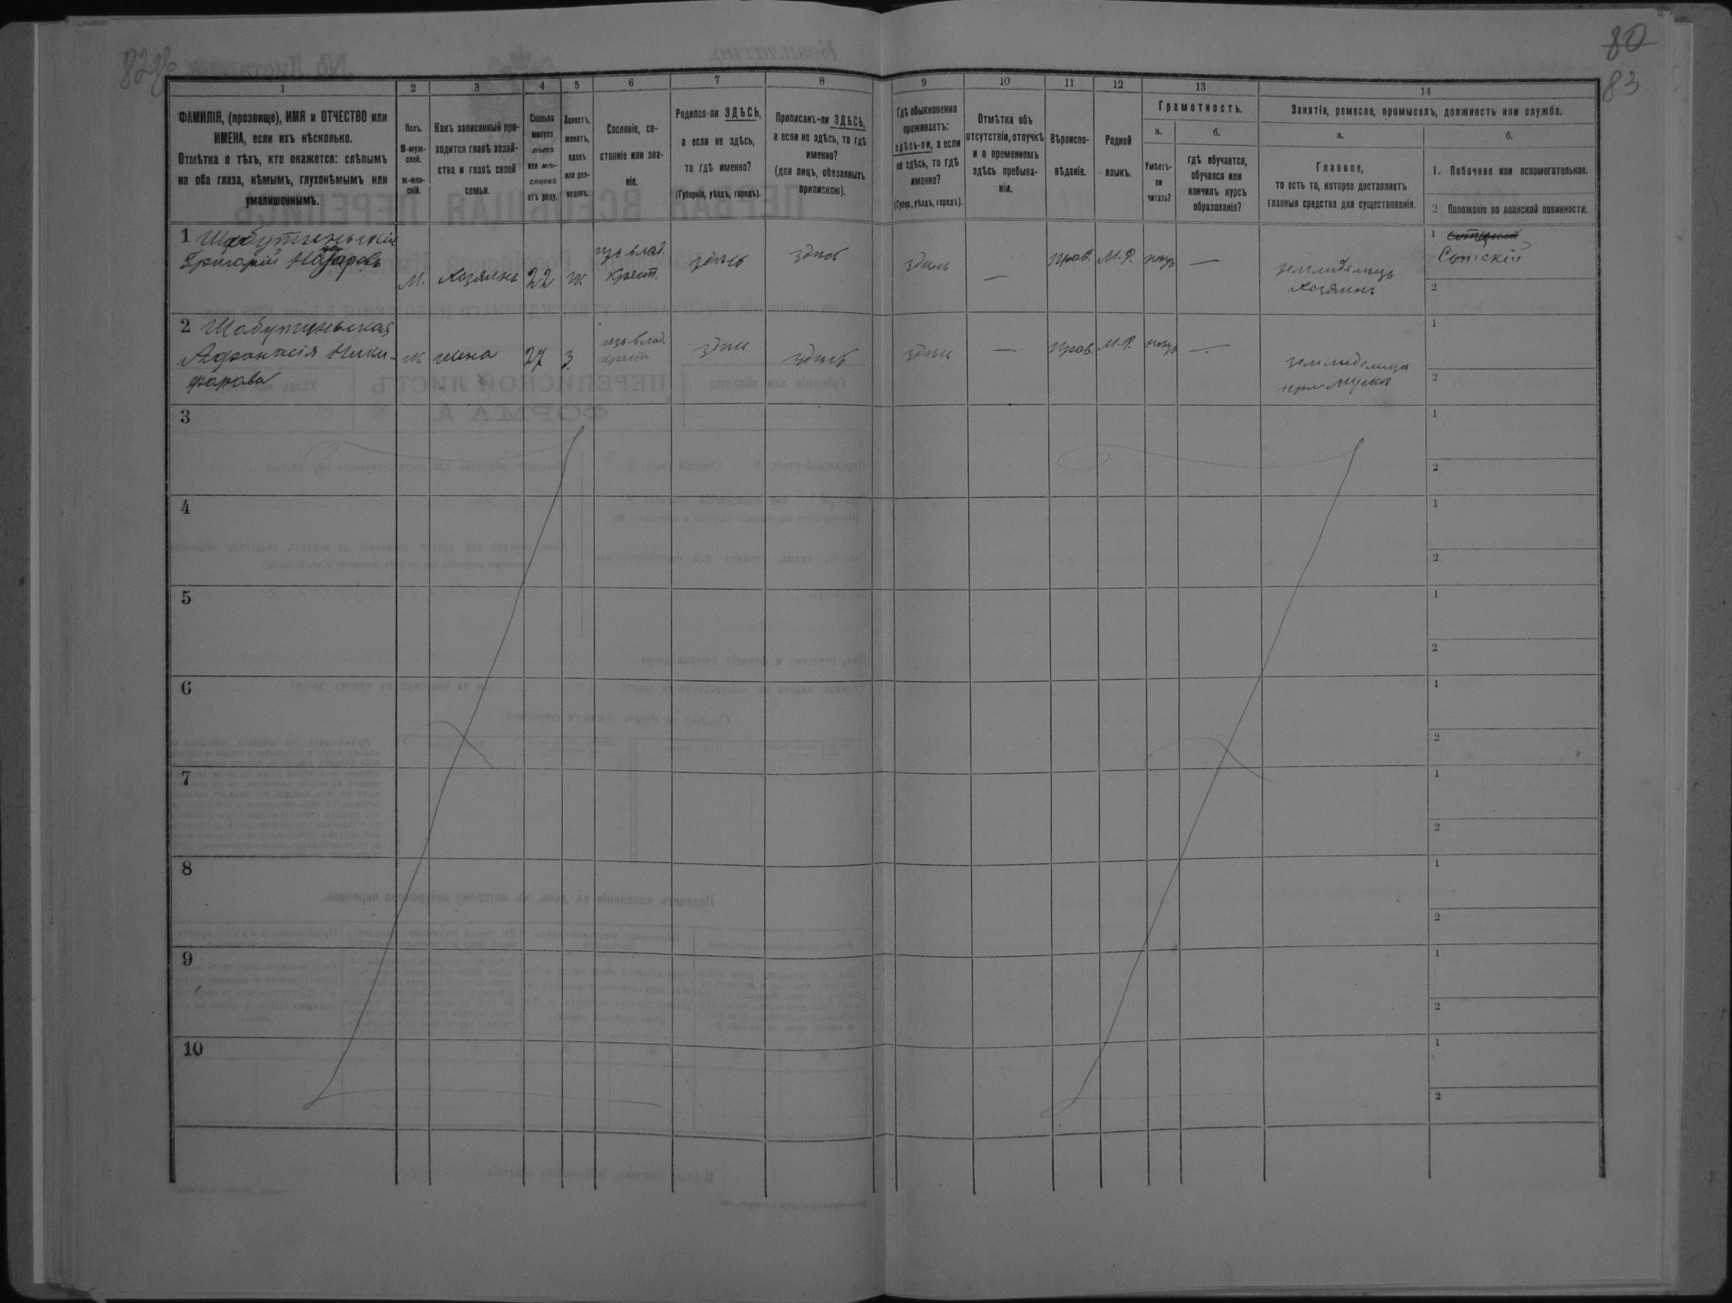 82об
80
83
1
2
3
4
5
6
7
8
9
10
11
12
13
14
ФАМИЛІЯ, (прозвище), ИМЯ и ОТЧЕСТВО или
ИМЕНА, если ихъ нѣсколько.
Отмѣтка о тѣхъ, кто окажется: слѣпымъ
на оба глаза, нѣмымъ, глухонѣмымъ или
умалишеннымъ.
Полъ.
М-муж-
ской.
ж-жен-
скій.
Какъ записанный при-
ходится главѣ хозяй-
ства и главѣ своей
семьи.
Сколько
минуло
лѣтъ
или мѣ-
сяцевъ
отъ роду.
Холостъ,
женатъ,
вдовъ
или раз-
веденъ.
Сословіе, со-
стояніе или зва-
ніе.
Родился-ли ЗДѢСЬ,
а если не здѣсь,
то гдѣ именно?
(Губернія, уѣздъ, городъ).
Приписанъ-ли ЗДѢСЬ,
а если не здѣсь, то гдѣ
именно?
(для лицъ, обязанныхъ
припискою).
Гдѣ обыкновенно
проживаетъ:
здѣсь-ли, а если
не здѣсь, то гдѣ
именно?
(Губер., уѣздъ, городъ).
Отмѣтка объ
отсутствіи, отлучкѣ
и о временномъ
здѣсь пребыва-
ніи.
Вѣроиспо-
вѣданіе.
Родной
языкъ.
Грамотность.
а.
Умѣетъ-
ли
читать?
б.
гдѣ обучается,
обучался или
кончилъ курсъ
образованія?
Занятіе, ремесло, промыселъ, должность или служба.
а.
Главное,
то есть то, которое доставляетъ
главныя средства для существованія.
б.
1. Побочное или вспомогательное.
2 Положеніе по воинской повинности.
1 Григорій Назаровъ
М.
хозяинъ
22
ж
изъ влад.
крест.
здѣсь
здѣсь
здѣсь
—
прав.
М.Р.
—
земледѣлецъ
хозяинъ
1
Сотскій
2
2 Шабутинская
Афанасія Ники-
форова
ж
жена
27
з.
изъ влад.
крест
здѣсь
здѣсь
здѣсь
—
прав.
М.Р.
—
земледѣлица
при мужѣ
1
2
3
1
2
4
1
2
5
1
2
6
1
2
7
1
2
8
1
2
9
1
2
10
1
2